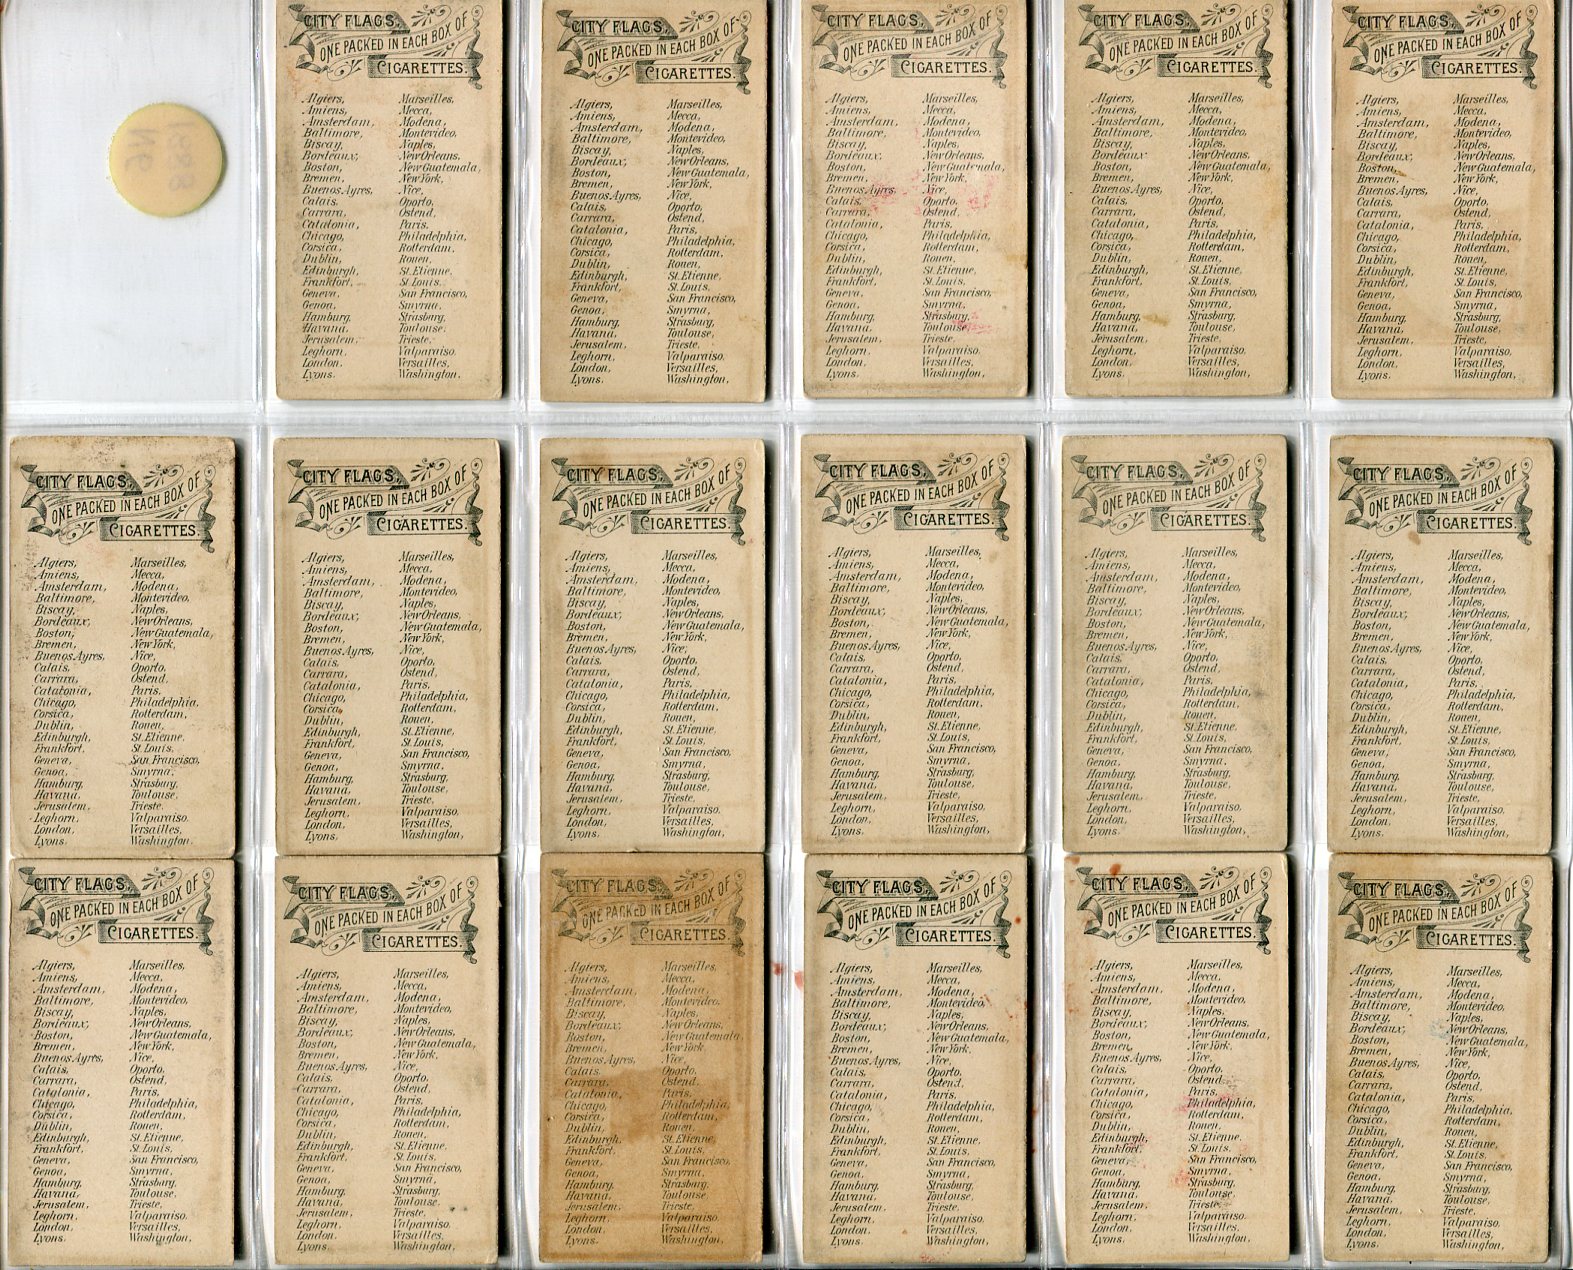 CITY FLAGS,
ONE PACKED IN EACH BOX OF
CIGARETTES.
Algiers, Marseilles,
Amiens, Mecca,
Amsterdam, Modena,
Baltimore, Montevideo,
Biscay, Naples,
Bordeaux, New Orleans,
Boston, New Guatemala,
Bremen, New York,
Buenos Ayres, Nice,
Calais, Oporto,
Carrara, Ostend,
Catalonia, Paris,
Chicago, Philadelphia,
Corsica, Rotterdam,
Dublin, Rouen,
Edinburgh, St. Etienne,
Frankfort, St. Louis,
Geneva, San Francisco,
Genoa, Smyrna,
Hamburg, Strasburg,
Havana, Toulouse,
Jerusalem, Trieste,
Leghorn, Valparaiso,
London, Versailles,
Lyons, Washington,
CITY FLAGS,
ONE PACKED IN EACH BOX OF
CIGARETTES.
Algiers, Marseilles,
Amiens, Mecca,
Amsterdam, Modena,
Baltimore, Montevideo,
Biscay, Naples,
Bordeaux, New Orleans,
Boston, New Guatemala,
Bremen, New York,
Buenos Ayres, Nice,
Calais, Oporto,
Carrara, Ostend,
Catalonia, Paris,
Chicago, Philadelphia,
Corsica, Rotterdam,
Dublin, Rouen,
Edinburgh, St. Etienne,
Frankfort, St. Louis,
Geneva, San Francisco,
Genoa, Smyrna,
Hamburg, Strasburg,
Havana, Toulouse,
Jerusalem, Trieste,
Leghorn, Valparaiso,
London, Versailles,
Lyons, Washington,
CITY FLAGS,
ONE PACKED IN EACH BOX OF
CIGARETTES.
Algiers, Marseilles,
Amiens, Mecca,
Amsterdam, Modena,
Baltimore, Montevideo,
Biscay, Naples,
Bordeaux, New Orleans,
Boston, New Guatemala,
Bremen, New York,
Buenos Ayres, Nice,
Calais, Oporto,
Carrara, Ostend,
Catalonia, Paris,
Chicago, Philadelphia,
Corsica, Rotterdam,
Dublin, Rouen,
Edinburgh, St. Etienne,
Frankfort, St. Louis,
Geneva, San Francisco,
Genoa, Smyrna,
Hamburg, Strasburg,
Havana, Toulouse,
Jerusalem, Trieste,
Leghorn, Valparaiso,
London, Versailles,
Lyons, Washington,
CITY FLAGS,
ONE PACKED IN EACH BOX OF
CIGARETTES.
Algiers, Marseilles,
Amiens, Mecca,
Amsterdam, Modena,
Baltimore, Montevideo,
Biscay, Naples,
Bordeaux, New Orleans,
Boston, New Guatemala,
Bremen, New York,
Buenos Ayres, Nice,
Calais, Oporto,
Carrara, Ostend,
Catalonia, Paris,
Chicago, Philadelphia,
Corsica, Rotterdam,
Dublin, Rouen,
Edinburgh, St. Etienne,
Frankfort, St. Louis,
Geneva, San Francisco,
Genoa, Smyrna,
Hamburg, Strasburg,
Havana, Toulouse,
Jerusalem, Trieste,
Leghorn, Valparaiso,
London, Versailles,
Lyons, Washington,
CITY FLAGS,
ONE PACKED IN EACH BOX OF
CIGARETTES.
Algiers, Marseilles,
Amiens, Mecca,
Amsterdam, Modena,
Baltimore, Montevideo,
Biscay, Naples,
Bordeaux, New Orleans,
Boston, New Guatemala,
Bremen, New York,
Buenos Ayres, Nice,
Calais, Oporto,
Carrara, Ostend,
Catalonia, Paris,
Chicago, Philadelphia,
Corsica, Rotterdam,
Dublin, Rouen,
Edinburgh, St. Etienne,
Frankfort, St. Louis,
Geneva, San Francisco,
Genoa, Smyrna,
Hamburg, Strasburg,
Havana, Toulouse,
Jerusalem, Trieste,
Leghorn, Valparaiso,
London, Versailles,
Lyons, Washington,
CITY FLAGS,
ONE PACKED IN EACH BOX OF
CIGARETTES.
Algiers, Marseilles,
Amiens, Mecca,
Amsterdam, Modena,
Baltimore, Montevideo,
Biscay, Naples,
Bordeaux, New Orleans,
Boston, New Guatemala,
Bremen, New York,
Buenos Ayres, Nice,
Calais, Oporto,
Carrara, Ostend,
Catalonia, Paris,
Chicago, Philadelphia,
Corsica, Rotterdam,
Dublin, Rouen,
Edinburgh, St. Etienne,
Frankfort, St. Louis,
Geneva, San Francisco,
Genoa, Smyrna,
Hamburg, Strasburg,
Havana, Toulouse,
Jerusalem, Trieste,
Leghorn, Valparaiso,
London, Versailles,
Lyons, Washington,
CITY FLAGS,
ONE PACKED IN EACH BOX OF
CIGARETTES.
Algiers, Marseilles,
Amiens, Mecca,
Amsterdam, Modena,
Baltimore, Montevideo,
Biscay, Naples,
Bordeaux, New Orleans,
Boston, New Guatemala,
Bremen, New York,
Buenos Ayres, Nice,
Calais, Oporto,
Carrara, Ostend,
Catalonia, Paris,
Chicago, Philadelphia,
Corsica, Rotterdam,
Dublin, Rouen,
Edinburgh, St. Etienne,
Frankfort, St. Louis,
Geneva, San Francisco,
Genoa, Smyrna,
Hamburg, Strasburg,
Havana, Toulouse,
Jerusalem, Trieste,
Leghorn, Valparaiso,
London, Versailles,
Lyons, Washington,
CITY FLAGS,
ONE PACKED IN EACH BOX OF
CIGARETTES.
Algiers, Marseilles,
Amiens, Mecca,
Amsterdam, Modena,
Baltimore, Montevideo,
Biscay, Naples,
Bordeaux, New Orleans,
Boston, New Guatemala,
Bremen, New York,
Buenos Ayres, Nice,
Calais, Oporto,
Carrara, Ostend,
Catalonia, Paris,
Chicago, Philadelphia,
Corsica, Rotterdam,
Dublin, Rouen,
Edinburgh, St. Etienne,
Frankfort, St. Louis,
Geneva, San Francisco,
Genoa, Smyrna,
Hamburg, Strasburg,
Havana, Toulouse,
Jerusalem, Trieste,
Leghorn, Valparaiso,
London, Versailles,
Lyons, Washington,
CITY FLAGS,
ONE PACKED IN EACH BOX OF
CIGARETTES.
Algiers, Marseilles,
Amiens, Mecca,
Amsterdam, Modena,
Baltimore, Montevideo,
Biscay, Naples,
Bordeaux, New Orleans,
Boston, New Guatemala,
Bremen, New York,
Buenos Ayres, Nice,
Calais, Oporto,
Carrara, Ostend,
Catalonia, Paris,
Chicago, Philadelphia,
Corsica, Rotterdam,
Dublin, Rouen,
Edinburgh, St. Etienne,
Frankfort, St. Louis,
Geneva, San Francisco,
Genoa, Smyrna,
Hamburg, Strasburg,
Havana, Toulouse,
Jerusalem, Trieste,
Leghorn, Valparaiso,
London, Versailles,
Lyons, Washington,
CITY FLAGS,
ONE PACKED IN EACH BOX OF
CIGARETTES.
Algiers, Marseilles,
Amiens, Mecca,
Amsterdam, Modena,
Baltimore, Montevideo,
Biscay, Naples,
Bordeaux, New Orleans,
Boston, New Guatemala,
Bremen, New York,
Buenos Ayres, Nice,
Calais, Oporto,
Carrara, Ostend,
Catalonia, Paris,
Chicago, Philadelphia,
Corsica, Rotterdam,
Dublin, Rouen,
Edinburgh, St. Etienne,
Frankfort, St. Louis,
Geneva, San Francisco,
Genoa, Smyrna,
Hamburg, Strasburg,
Havana, Toulouse,
Jerusalem, Trieste,
Leghorn, Valparaiso,
London, Versailles,
Lyons, Washington,
CITY FLAGS,
ONE PACKED IN EACH BOX OF
CIGARETTES.
Algiers, Marseilles,
Amiens, Mecca,
Amsterdam, Modena,
Baltimore, Montevideo,
Biscay, Naples,
Bordeaux, New Orleans,
Boston, New Guatemala,
Bremen, New York,
Buenos Ayres, Nice,
Calais, Oporto,
Carrara, Ostend,
Catalonia, Paris,
Chicago, Philadelphia,
Corsica, Rotterdam,
Dublin, Rouen,
Edinburgh, St. Etienne,
Frankfort, St. Louis,
Geneva, San Francisco,
Genoa, Smyrna,
Hamburg, Strasburg,
Havana, Toulouse,
Jerusalem, Trieste,
Leghorn, Valparaiso,
London, Versailles,
Lyons, Washington,
CITY FLAGS,
ONE PACKED IN EACH BOX OF
CIGARETTES.
Algiers, Marseilles,
Amiens, Mecca,
Amsterdam, Modena,
Baltimore, Montevideo,
Biscay, Naples,
Bordeaux, New Orleans,
Boston, New Guatemala,
Bremen, New York,
Buenos Ayres, Nice,
Calais, Oporto,
Carrara, Ostend,
Catalonia, Paris,
Chicago, Philadelphia,
Corsica, Rotterdam,
Dublin, Rouen,
Edinburgh, St. Etienne,
Frankfort, St. Louis,
Geneva, San Francisco,
Genoa, Smyrna,
Hamburg, Strasburg,
Havana, Toulouse,
Jerusalem, Trieste,
Leghorn, Valparaiso,
London, Versailles,
Lyons, Washington,
CITY FLAGS,
ONE PACKED IN EACH BOX OF
CIGARETTES.
Algiers, Marseilles,
Amiens, Mecca,
Amsterdam, Modena,
Baltimore, Montevideo,
Biscay, Naples,
Bordeaux, New Orleans,
Boston, New Guatemala,
Bremen, New York,
Buenos Ayres, Nice,
Calais, Oporto,
Carrara, Ostend,
Catalonia, Paris,
Chicago, Philadelphia,
Corsica, Rotterdam,
Dublin, Rouen,
Edinburgh, St. Etienne,
Frankfort, St. Louis,
Geneva, San Francisco,
Genoa, Smyrna,
Hamburg, Strasburg,
Havana, Toulouse,
Jerusalem, Trieste,
Leghorn, Valparaiso,
London, Versailles,
Lyons, Washington,
CITY FLAGS,
ONE PACKED IN EACH BOX OF
CIGARETTES.
Algiers, Marseilles,
Amiens, Mecca,
Amsterdam, Modena,
Baltimore, Montevideo,
Biscay, Naples,
Bordeaux, New Orleans,
Boston, New Guatemala,
Bremen, New York,
Buenos Ayres, Nice,
Calais, Oporto,
Carrara, Ostend,
Catalonia, Paris,
Chicago, Philadelphia,
Corsica, Rotterdam,
Dublin, Rouen,
Edinburgh, St. Etienne,
Frankfort, St. Louis,
Geneva, San Francisco,
Genoa, Smyrna,
Hamburg, Strasburg,
Havana, Toulouse,
Jerusalem, Trieste,
Leghorn, Valparaiso,
London, Versailles,
Lyons, Washington,
CITY FLAGS,
ONE PACKED IN EACH BOX OF
CIGARETTES.
Algiers, Marseilles,
Amiens, Mecca,
Amsterdam, Modena,
Baltimore, Montevideo,
Biscay, Naples,
Bordeaux, New Orleans,
Boston, New Guatemala,
Bremen, New York,
Buenos Ayres, Nice,
Calais, Oporto,
Carrara, Ostend,
Catalonia, Paris,
Chicago, Philadelphia,
Corsica, Rotterdam,
Dublin, Rouen,
Edinburgh, St. Etienne,
Frankfort, St. Louis,
Geneva, San Francisco,
Genoa, Smyrna,
Hamburg, Strasburg,
Havana, Toulouse,
Jerusalem, Trieste,
Leghorn, Valparaiso,
London, Versailles,
Lyons, Washington,
CITY FLAGS,
ONE PACKED IN EACH BOX OF
CIGARETTES.
Algiers, Marseilles,
Amiens, Mecca,
Amsterdam, Modena,
Baltimore, Montevideo,
Biscay, Naples,
Bordeaux, New Orleans,
Boston, New Guatemala,
Bremen, New York,
Buenos Ayres, Nice,
Calais, Oporto,
Carrara, Ostend,
Catalonia, Paris,
Chicago, Philadelphia,
Corsica, Rotterdam,
Dublin, Rouen,
Edinburgh, St. Etienne,
Frankfort, St. Louis,
Geneva, San Francisco,
Genoa, Smyrna,
Hamburg, Strasburg,
Havana, Toulouse,
Jerusalem, Trieste,
Leghorn, Valparaiso,
London, Versailles,
Lyons, Washington,
CITY FLAGS,
ONE PACKED IN EACH BOX OF
CIGARETTES.
Algiers, Marseilles,
Amiens, Mecca,
Amsterdam, Modena,
Baltimore, Montevideo,
Biscay, Naples,
Bordeaux, New Orleans,
Boston, New Guatemala,
Bremen, New York,
Buenos Ayres, Nice,
Calais, Oporto,
Carrara, Ostend,
Catalonia, Paris,
Chicago, Philadelphia,
Corsica, Rotterdam,
Dublin, Rouen,
Edinburgh, St. Etienne,
Frankfort, St. Louis,
Geneva, San Francisco,
Genoa, Smyrna,
Hamburg, Strasburg,
Havana, Toulouse,
Jerusalem, Trieste,
Leghorn, Valparaiso,
London, Versailles,
Lyons, Washington,